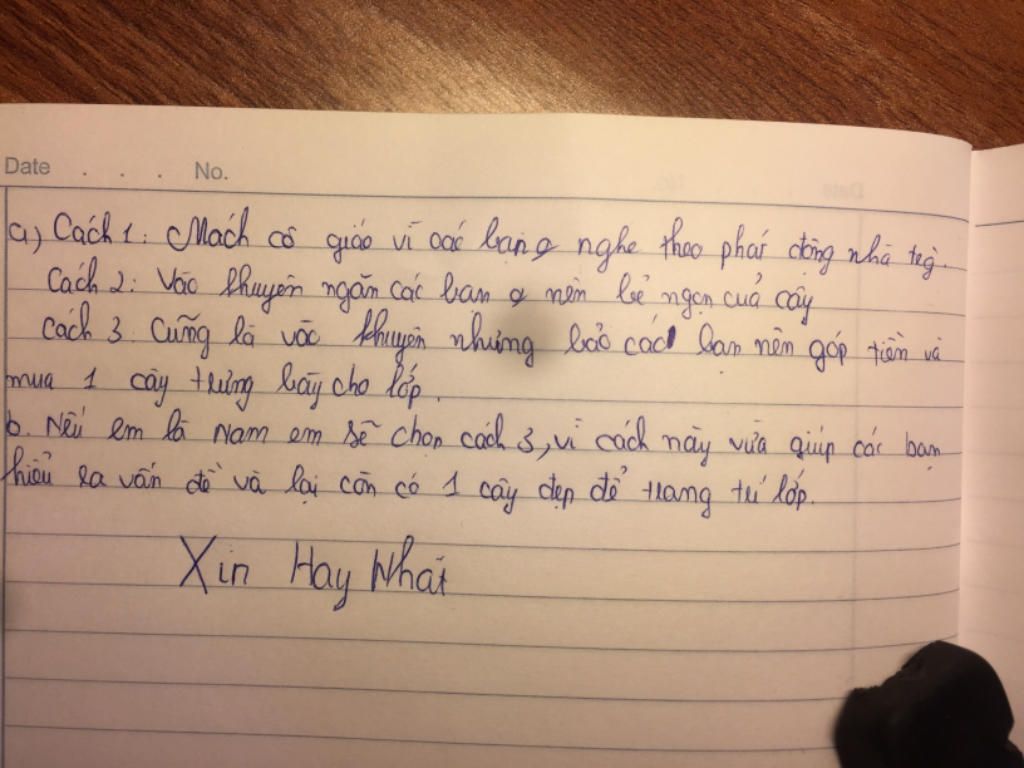 Date . . . No.
a) Cách 1: Mách cô giáo vì các bạn nghe theo phát động nhà
Cách 2: Vào khuyên ngăn các bạn nên bẻ ngọn cuả cây
Cách 3. Cũng là vào khuyên nhưng bảo các bạn nên góp tiền và
mua 1 cây trưng bày cho lớp.
b. Nếu em là Nam em sẽ chọn cách 3, vì cách này vừa giúp các bạn
hiểu ra vấn đề và lại còn có 1 cây đẹp để trang trí lớp.
Xin Hay Nhất